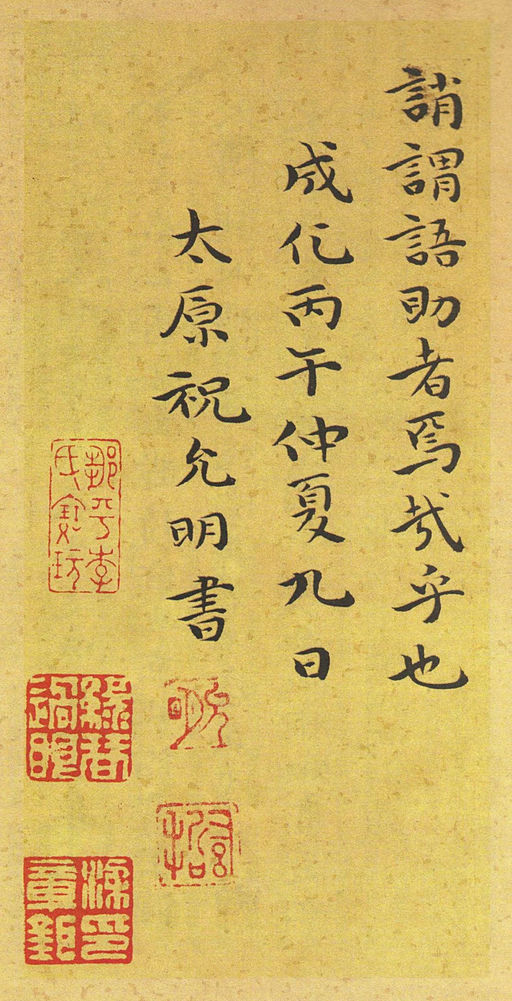 誚謂語助者焉哉乎也
成化丙午仲夏九日
太原祝允明書